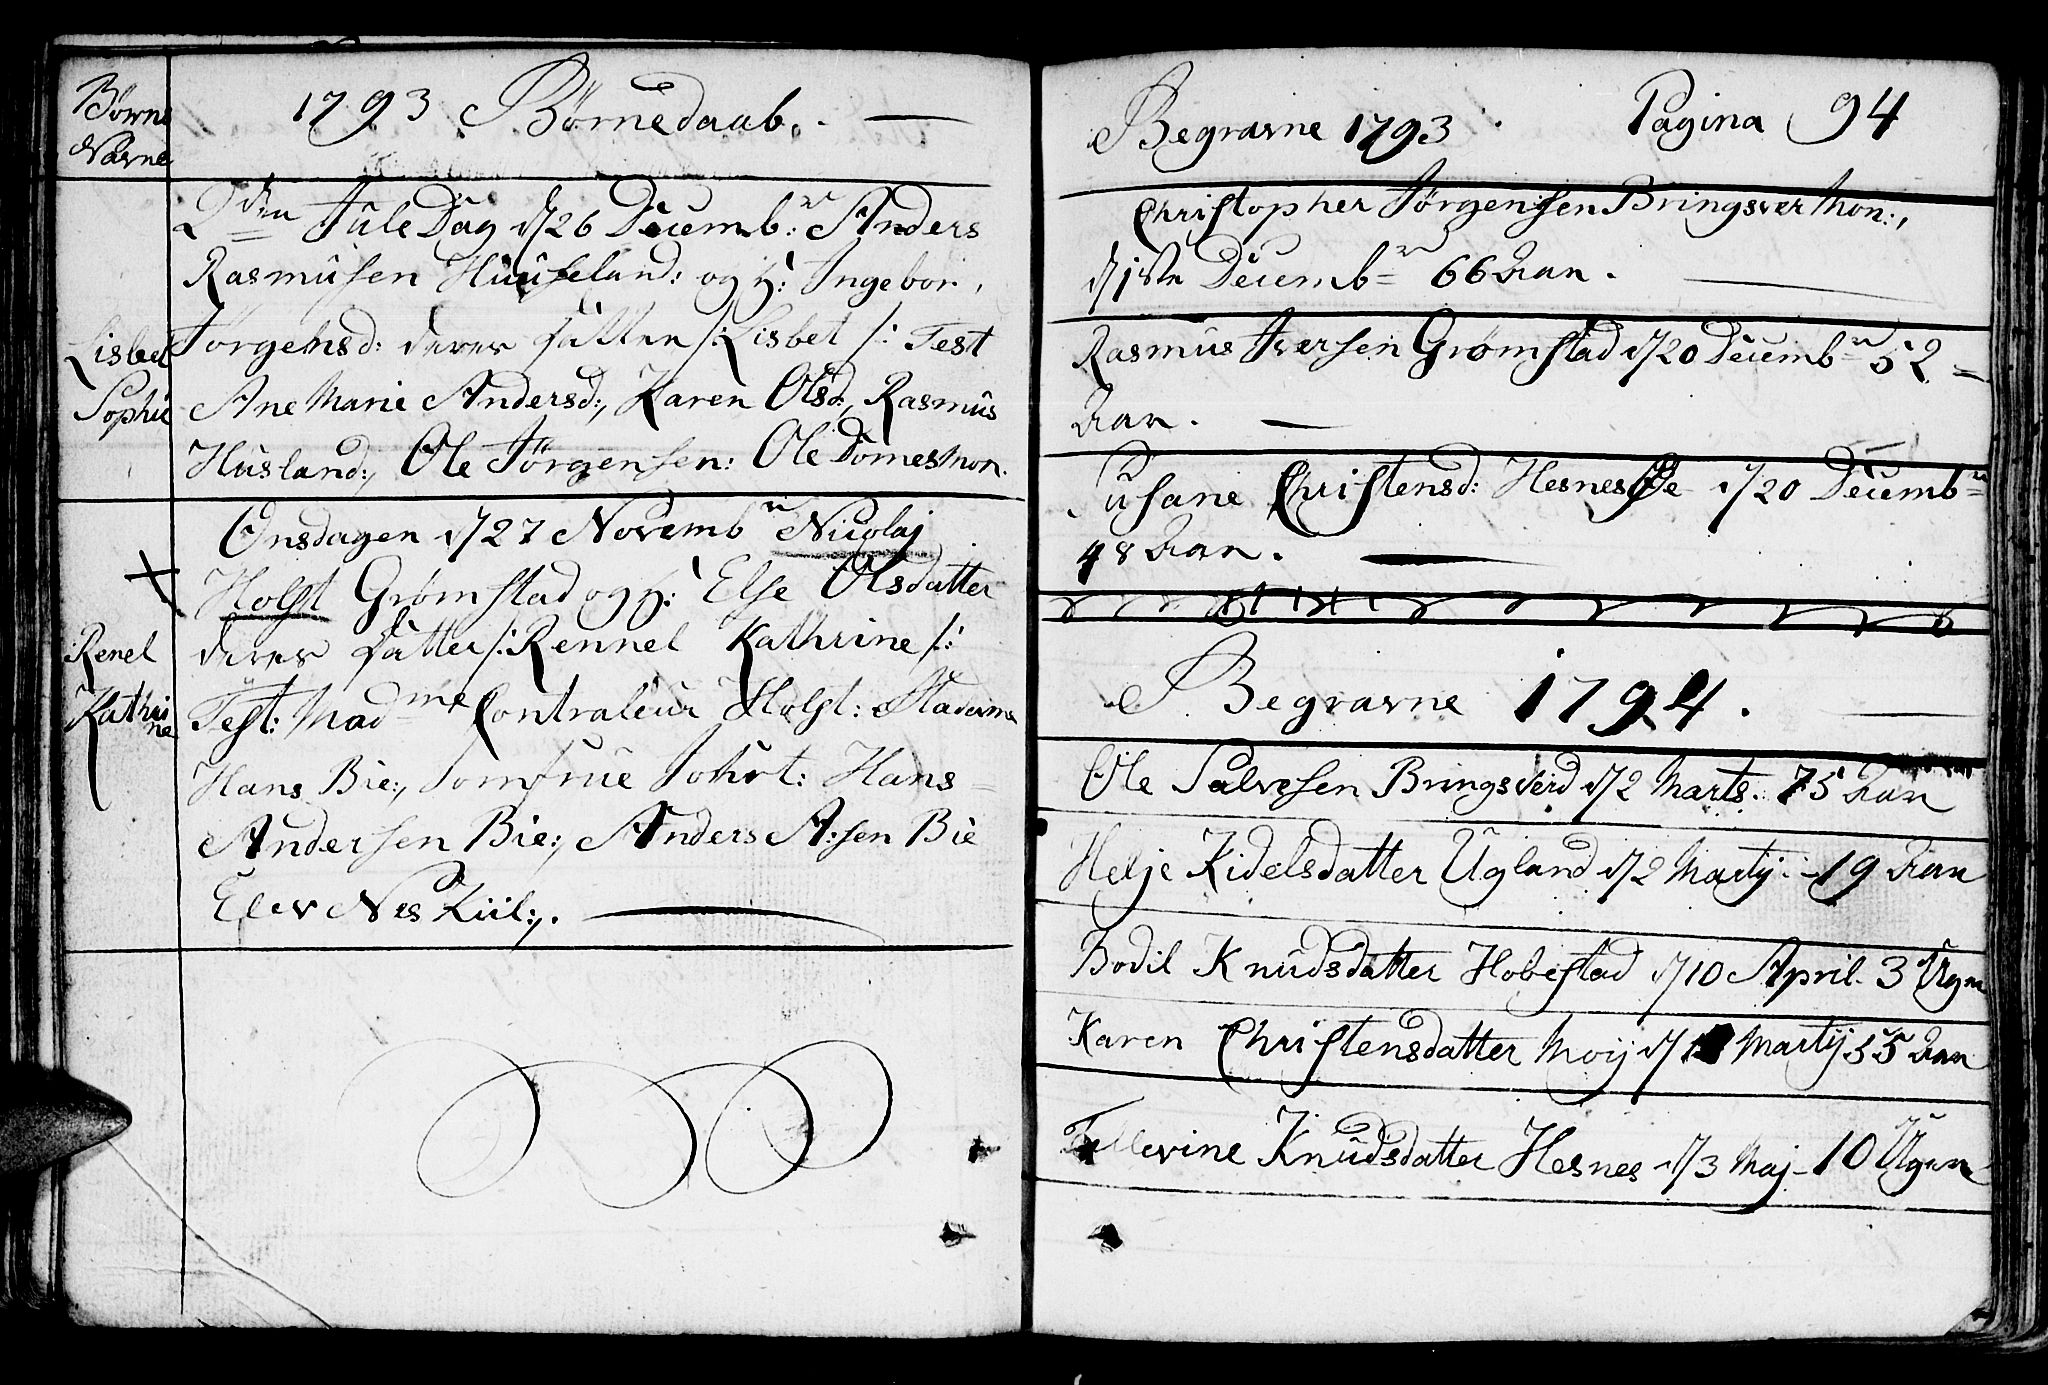 Børne
Navne
1793 Børnedaab.
2den Jule Dag d/26 Decembr: Anders
Rasmusen Huuseland: og H: Ingebor,
Jørgensd: deres datter /: Lisbet /: Test
Lisbet
Sophie
Ane Marie Andersd:, Karen Olsd:, Rasmus
Husland:, Ole Jørgensen: Ole Domesmon.
Onsdagen d/27 Novembr Nicolaj
Holst Grømstad og H: Else Olsdatter
deres datter /: Rennel Kathrine /:
Renel
Kathri
ne
Test: Madme Contraleur Holst:
Hans Bie:, Jomfrue Hans
Andersen Bie:, Anders A:sen Bie
Elev Nes Kiil:,.
Begravne 1793
Pagina 94
Christopher Jørgensen Bringsver Mon:,
d/1ste Decembr 66 Aar.
Rasmus Iversen Grømstad d/20 Decembr 52
Aar.
Susane Christensd: HesnesØe d/20 Decembr
48 Aar.
Begravne 1794.
Ole Salvesen Bringsverd d/2 Marts. 75 Aar
Helje Kidelsdatter Ugland d/2 Martij: 19 Aar
Bodil Knudsdatter Hobestad d/10 April. 3 Uger
Karen Christensdatter Moij d/ Martij 55 Aar
Tellevine Knudsdatter Hesnes d/3 Maj 10 Uger